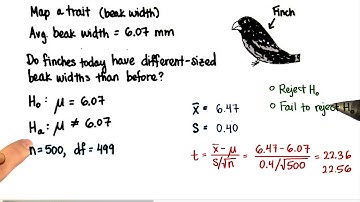 Map a trait (beak width)
Avg. beak width = 6.07 mm
Finch
Do finches today have different-sized
beak widths than before?
H₀: μ = 6.07
Hₐ: μ ≠ 6.07
n=500, df = 499
x̄ = 6.47
S = 0.40
Reject H₀
Fail to reject H₀
t = x̄ - μ / S/√n = 6.47 - 6.07 / 0.4/√500 = 22.36
22.56